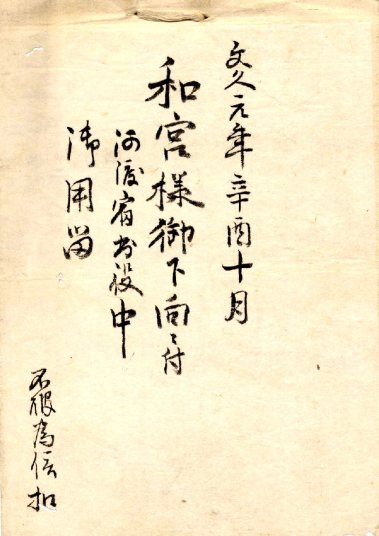 文久元年辛酉十月
和宮様御下向ニ付
河渡宿出役中
御用留
不破為信扣